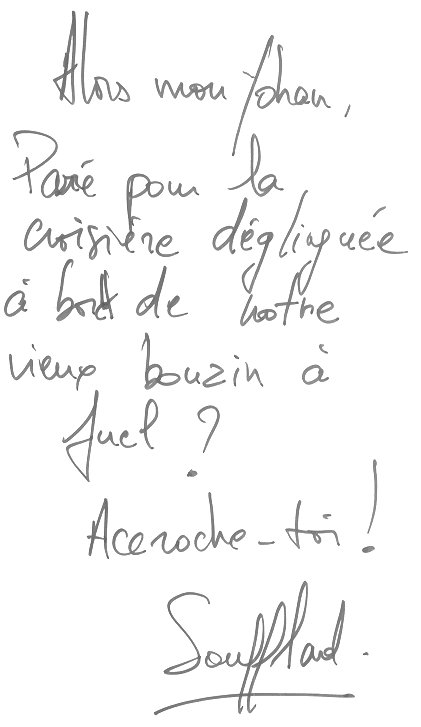 Alors mon Johan,
Paré pour la
croisière déglinguée
à bord de notre
vieux bouzin à
fuel ?
Accroche-toi !
Soufflard.